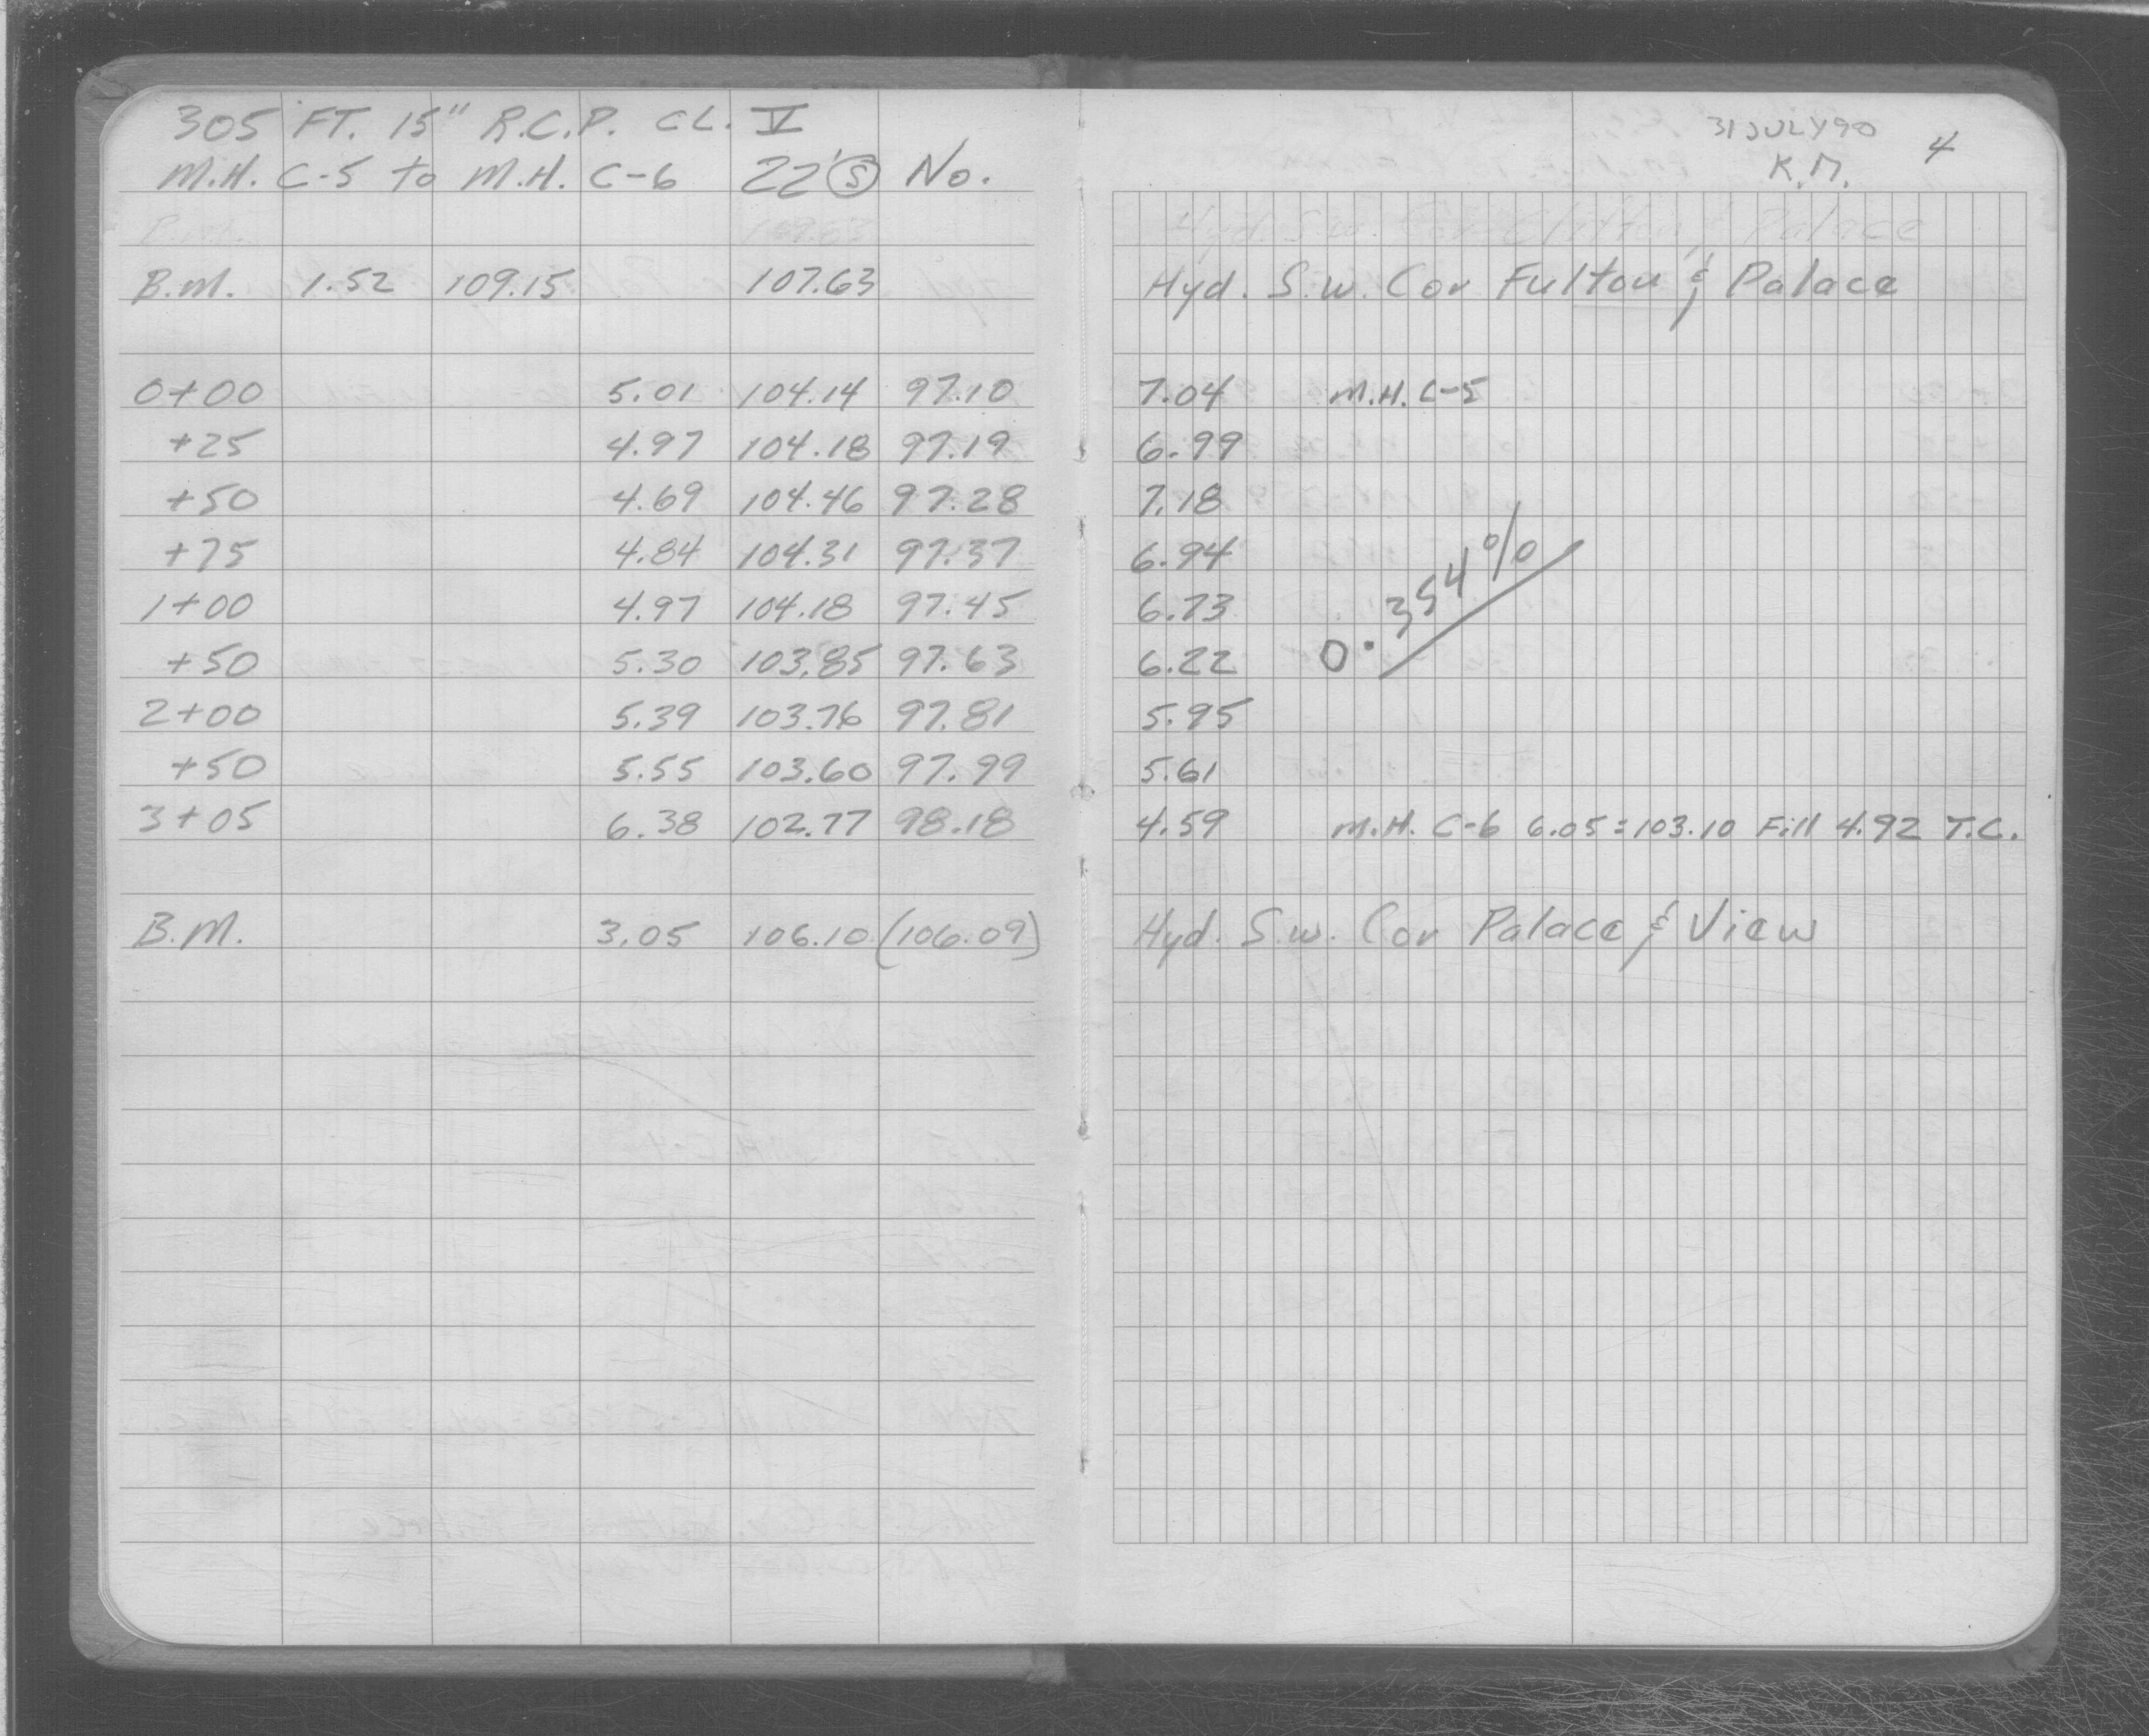 305 FT. 15" R.C.P. CL. V
M.H. C-5 to M.H. C-6 22' S No.
B.M. 1.52 109.15 107.63
0+00 5.01 104.14 97.10
+25 4.97 104.18 97.19
+50 4.69 104.46 97.28
+75 4.84 104.31 97.37
1+00 4.97 104.18 97.45
+50 5.30 103.85 97.63
2+00 5.39 103.76 97.81
+50 5.55 103.60 97.99
3+05 6.38 102.77 98.18
B.M. 3.05 106.10 (106.09)
31 JULY 90
4
K.M.
Hyd. S.W. Cor Palace
Hyd. S.W. Cor Fulton & Palace
7.04 M.H. C-5
6.99
7.18
6.94
6.73
6.22
0.354%
5.95
5.61
4.59 M.H. C-6 6.05=103.10 Fill 4.92 T.C.
Hyd. S.W. Cor Palace & View